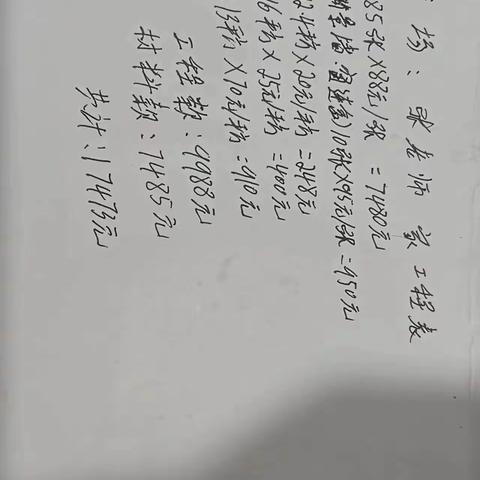 ：张老师家工程表
85张×88元/张 =7480元
10张×95元/张=950元
×20元/ =248元
×25元/ =400元
13 ×70元/ =910元
工程款：9988元
材料款：7485元
共计：17473元